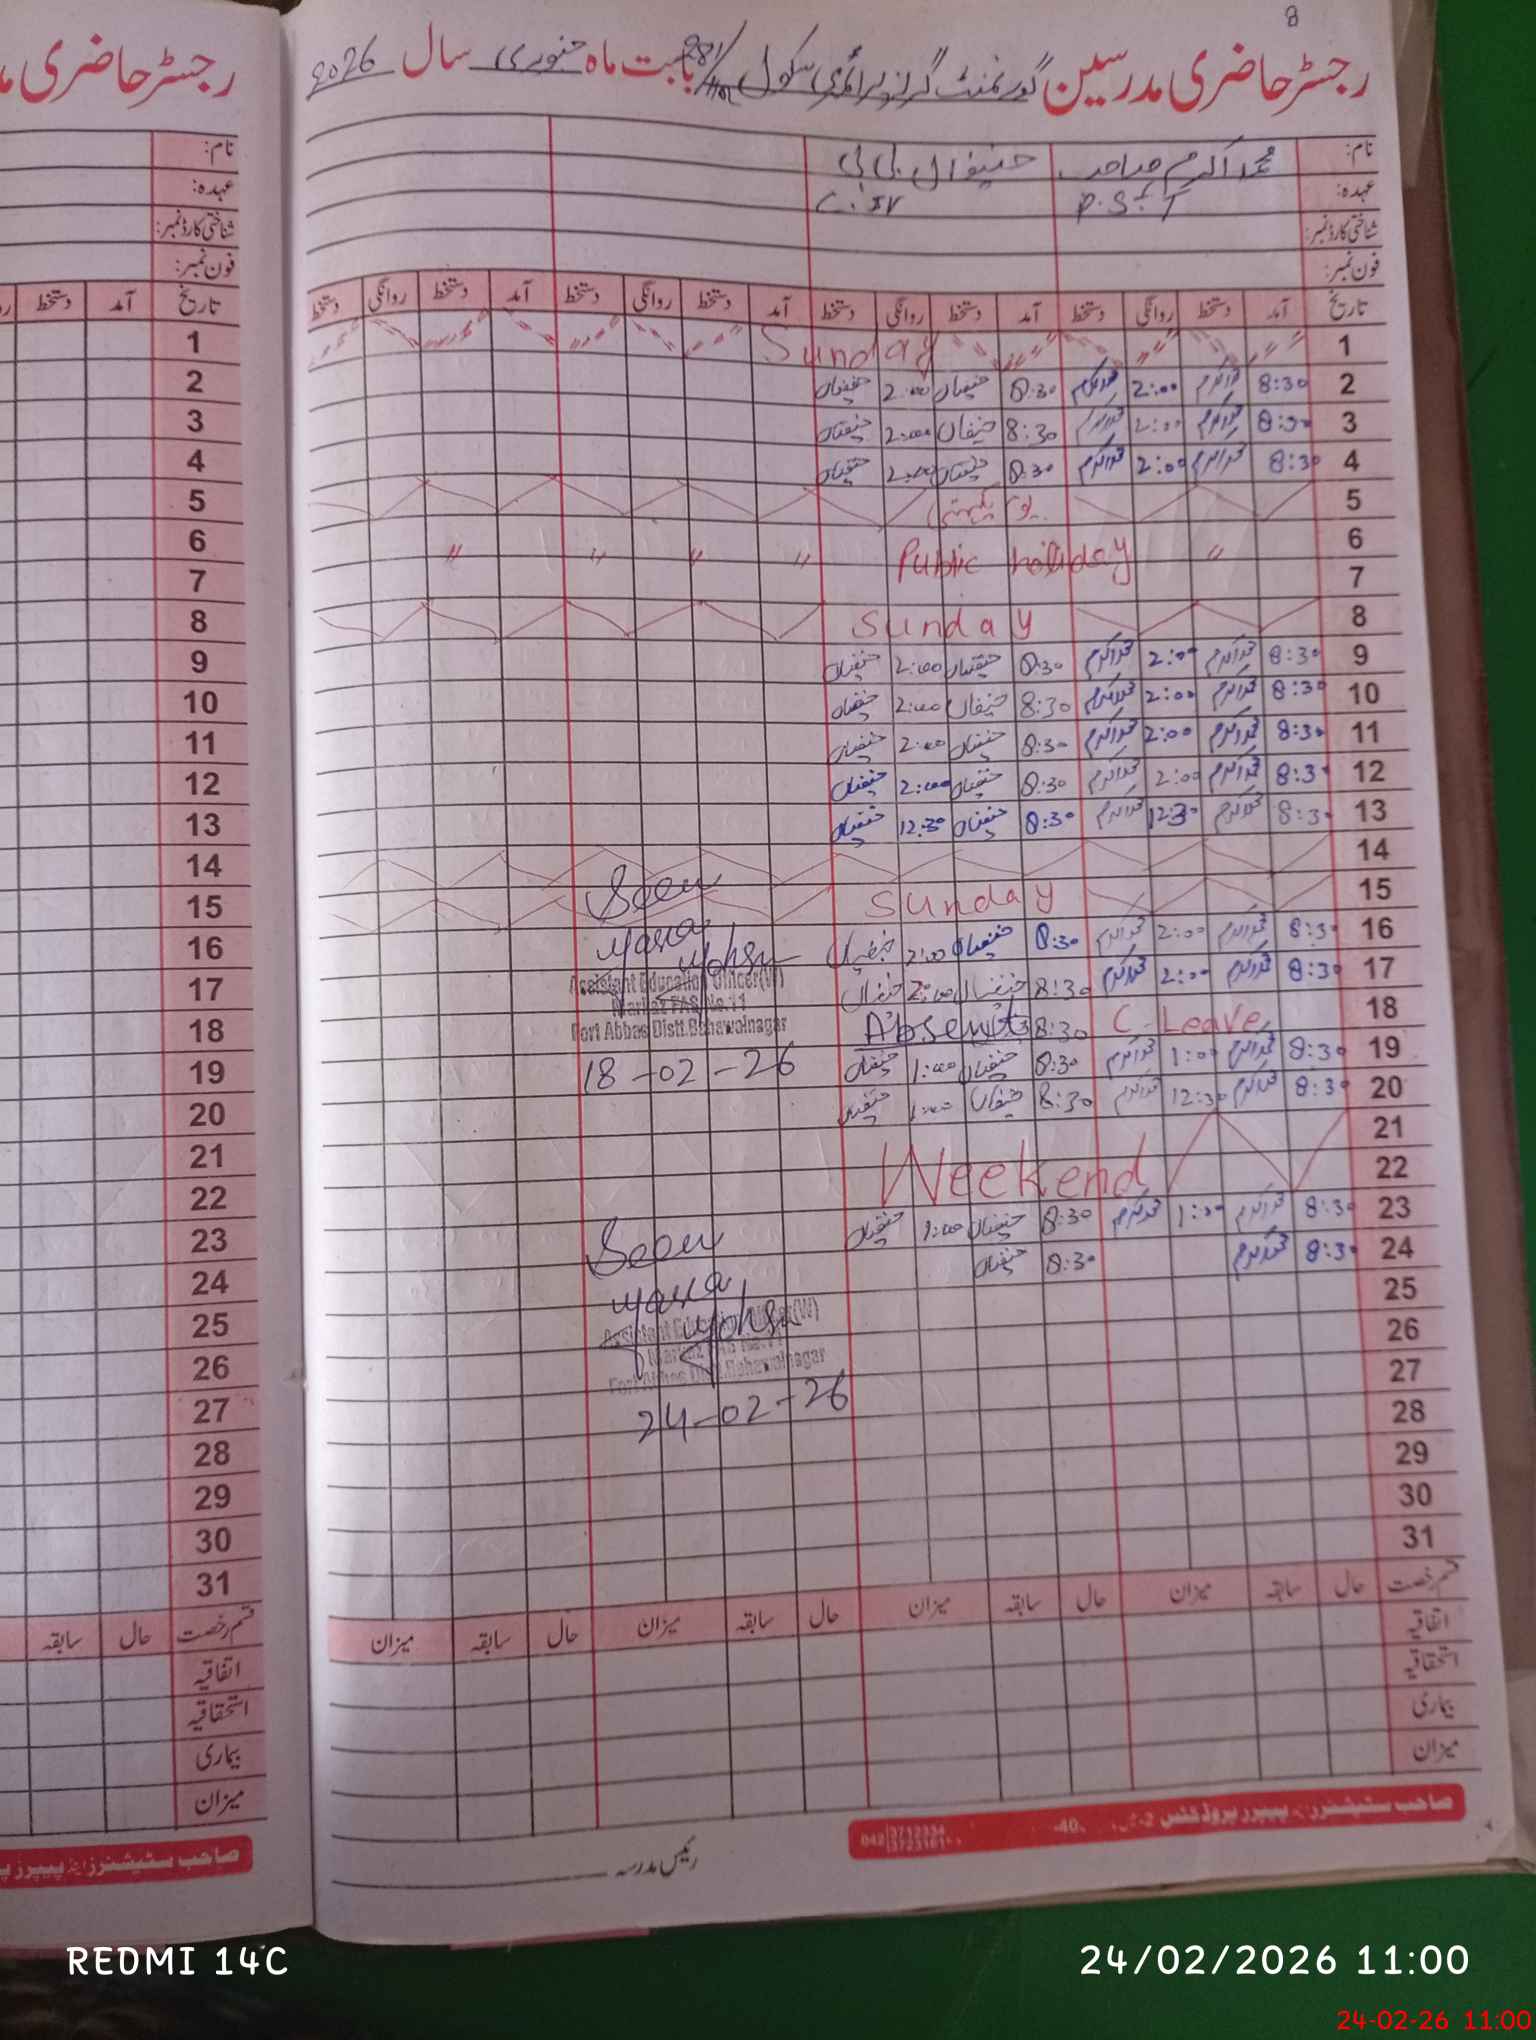 8
رجسٹر حاضری مدرسین گورنمنٹ گرلز پرائمری سکول 281/HR بابت ماہ جنوری سال 2026
نام: محمد اکرم صاحب حنیفاں بی بی
عہدہ: P.S.T C.IV
شناختی کارڈ نمبر:
فون نمبر:
تاریخ آمد دستخط روانگی دستخط آمد دستخط روانگی دستخط آمد دستخط روانگی دستخط آمد دستخط روانگی دستخط
1 Sunday
2 8:30 محمد اکرم 2:00 محمد اکرم 8:30 حنیفاں 2:00 حنیفاں
3 8:30 محمد اکرم 2:00 محمد اکرم 8:30 حنیفاں 2:00 حنیفاں
4 8:30 محمد اکرم 2:00 محمد اکرم 8:30 حنیفاں 2:00 حنیفاں
5
6 " Public holiday " " " "
7
8 Sunday
9 8:30 محمد اکرم 2:00 محمد اکرم 8:30 حنیفاں 2:00 حنیفاں
10 8:30 محمد اکرم 2:00 محمد اکرم 8:30 حنیفاں 2:00 حنیفاں
11 8:30 محمد اکرم 2:00 محمد اکرم 8:30 حنیفاں 2:00 حنیفاں
12 8:30 محمد اکرم 2:00 محمد اکرم 8:30 حنیفاں 2:00 حنیفاں
13 8:30 محمد اکرم 12:30 محمد اکرم 8:30 حنیفاں 12:30 حنیفاں
14
15 Sunday
16 8:30 محمد اکرم 2:00 محمد اکرم 8:30 حنیفاں 2:00 حنیفاں
17 8:30 محمد اکرم 2:00 محمد اکرم 8:30 حنیفاں 2:00 حنیفاں
18 C-Leave 8:30 Absent
19 8:30 محمد اکرم 1:00 محمد اکرم 8:30 حنیفاں 1:00 حنیفاں
20 8:30 محمد اکرم 12:30 محمد اکرم 8:30 حنیفاں 1:00 حنیفاں
21
22 Weekend
23 8:30 محمد اکرم 1:00 محمد اکرم 8:30 حنیفاں 1:00 حنیفاں
24 8:30 محمد اکرم 8:30 حنیفاں
25
26
27
28
29
30
31
Seen
Assistant Education Officer(W)
Markaz FAS No.11
Fort Abbas Distt.Bahawalnagar
18-02-26
Seen
Assistant Education Officer(W)
Fort Abbas Distt.Bahawalnagar
24-02-26
قسم رخصت حال سابقہ میزان حال سابقہ میزان حال سابقہ میزان حال سابقہ میزان
اتفاقیہ
استحقاقیہ
بیماری
میزان
صاحب سٹیشنرز اینڈ پیپرز پروڈکٹس
رئیس مدرسہ
رجسٹر حاضری
نام:
عہدہ:
شناختی کارڈ نمبر:
فون نمبر:
تاریخ آمد دستخط
1
2
3
4
5
6
7
8
9
10
11
12
13
14
15
16
17
18
19
20
21
22
23
24
25
26
27
28
29
30
31
قسم رخصت حال سابقہ
اتفاقیہ
استحقاقیہ
بیماری
میزان
صاحب سٹیشنرز اینڈ پیپرز
REDMI 14C
24/02/2026 11:00
24-02-26 11:00